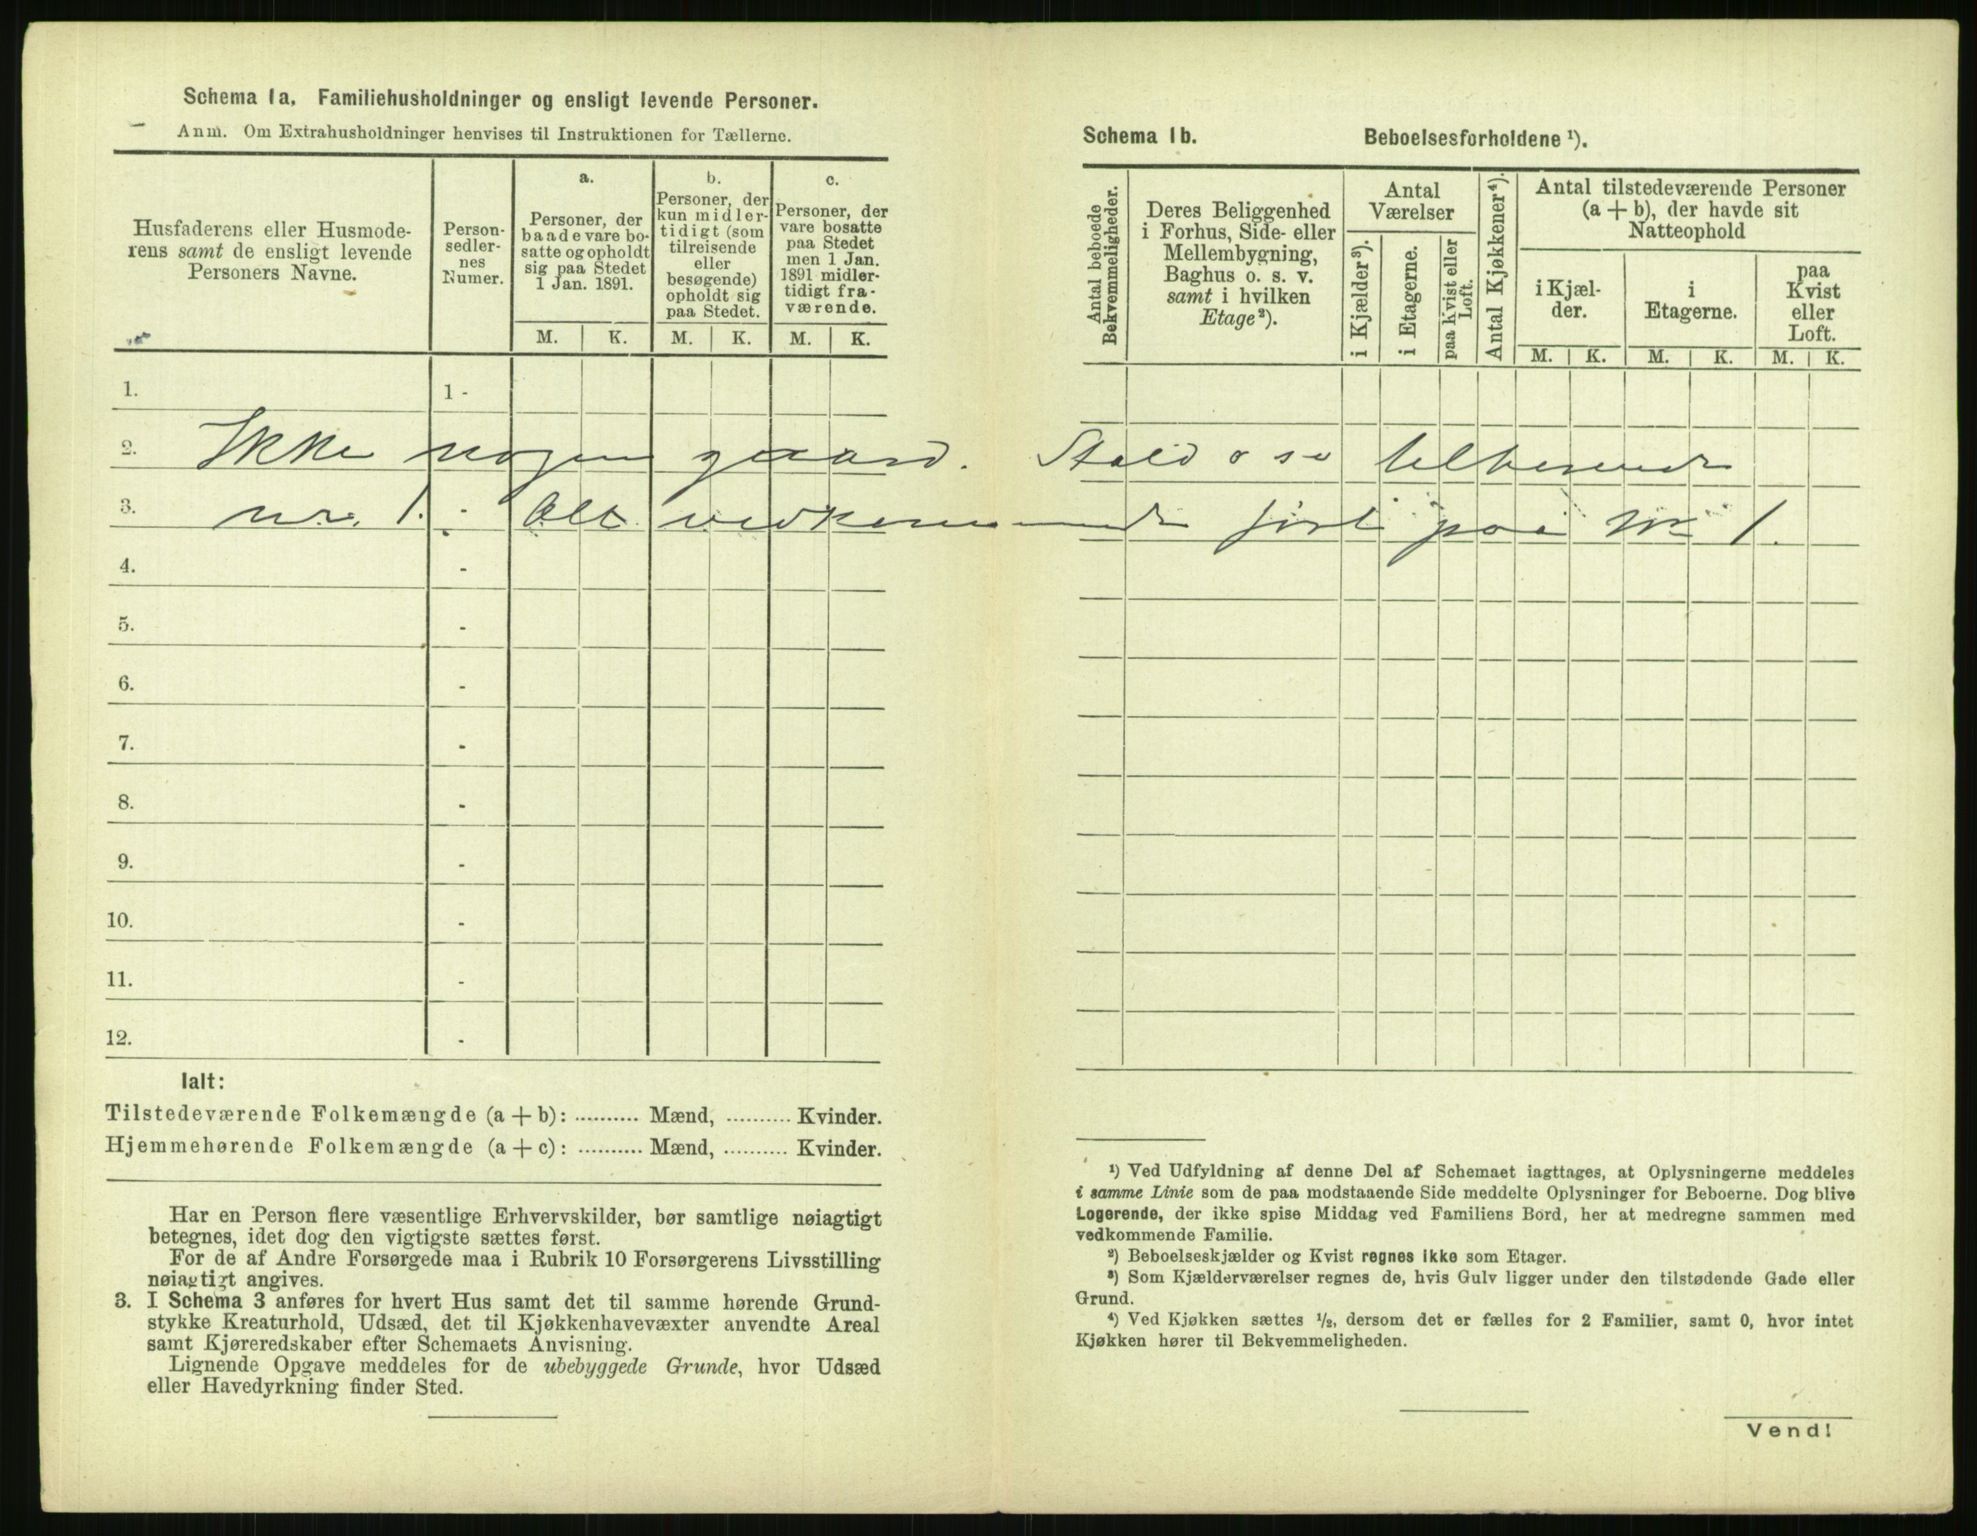 Schema 1a. Familiehusholdninger og ensligt levende Personer.
Anm. Om Extrahusholdninger henvises til Instruktionen for Tællerne.
Husfaderens eller Husmode-
rens samt de ensligt levende
Personers Navne.
Person-
sedler-
nes
Numer.
a.
Personer, der
baade vare bo-
satte og opholdt
sig paa Stedet
1 Jan. 1891.
b.
Personer, der
kun midler-
tidigt (som
tilreisende
eller
besøgende)
opholdt sig
paa Stedet.
c.
Personer, der
vare bosatte
paa Stedet
men 1 Jan.
1891 midler-
tidigt fra-
værende.
M. K. M. K. M. K.
1. 1 -
2. Ikke nogen gaard. Stald o s v tilhørende
3. nr. 1. - Alt vedkommende ført paa Nr 1.
4. -
5. -
6. -
7. -
8. -
9. -
10. -
11. -
12. -
Ialt:
Tilstedeværende Folkemængde (a + b): .......... Mænd, .......... Kvinder.
Hjemmehørende Folkemængde (a + c): .......... Mænd, .......... Kvinder.
Har en Person flere væsentlige Erhvervskilder, bør samtlige nøiagtigt
betegnes, idet dog den vigtigste sættes først.
For de af Andre Forsørgede maa i Rubrik 10 Forsørgerens Livsstilling
nøiagtigt angives.
3. I Schema 3 anføres for hvert Hus samt det til samme hørende Grund-
stykke Kreaturhold, Udsæd, det til Kjøkkenhavevæxter anvendte Areal
samt Kjøreredskaber efter Schemaets Anvisning.
Lignende Opgave meddeles for de ubebyggede Grunde, hvor Udsæd
eller Havedyrkning finder Sted.
Schema 1b. Beboelsesforholdene ¹).
Antal beboede
Bekvemmeligheder.
Deres Beliggenhed
i Forhus, Side- eller
Mellembygning,
Baghus o. s. v.
samt i hvilken
Etage²).
Antal
Værelser
i Kjælder³).
i Etagerne.
paa Kvist eller
Loft.
Antal Kjøkkener⁴).
Antal tilstedeværende Personer
(a + b), der havde sit
Natteophold
i Kjæl-
der.
i
Etagerne.
paa
Kvist
eller
Loft.
M. K. M. K. M. K.
¹) Ved Udfyldning af denne Del af Schemaet iagttages, at Oplysningerne meddeles
i samme Linie som de paa modstaaende Side meddelte Oplysninger for Beboerne. Dog blive
Logerende, der ikke spise Middag ved Familiens Bord, her at medregne sammen med
vedkommende Familie.
²) Beboelseskjælder og Kvist regnes ikke som Etager.
³) Som Kjælderværelser regnes de, hvis Gulv ligger under den tilstødende Gade eller
Grund.
⁴) Ved Kjøkken sættes ½, dersom det er fælles for 2 Familier, samt 0, hvor intet
Kjøkken hører til Bekvemmeligheden.
Vend!